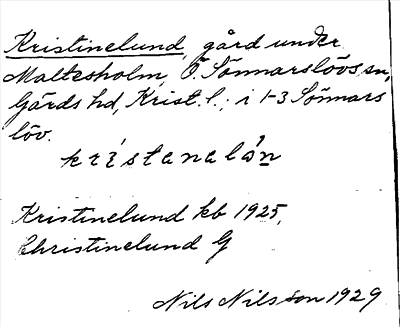 Kristinelund, gård under
Maltesholm, Ö. Sönnarslövs sn,
Gärds hd, Krist. l.; i 1-3 Sönnars
löv.
kristanalón
Kristinelund kb 1925,
Christinelund G
Nils Nilsson 1929